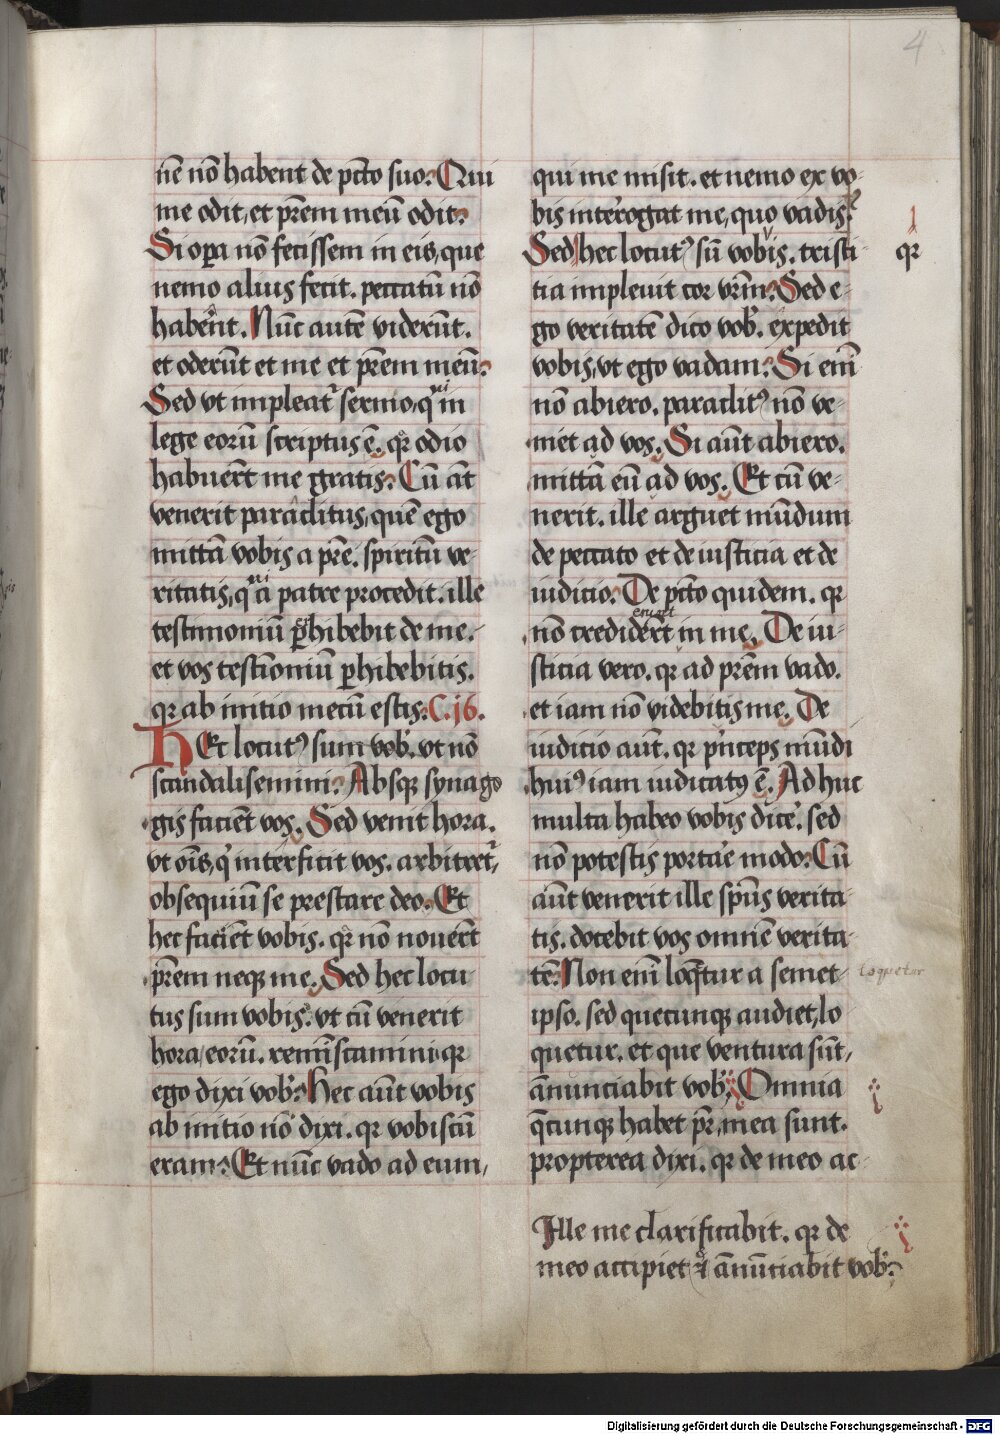 4
nē nō habent de pctō suo. Qui
me odit, et prēm meū odit.
Si opa nō fecissem in eis, que
nemo alius fecit. peccatū nō
haberēt. Nūc autē viderūt.
et oderūt et me et prēm meū.
Sed vt impleatʳ sermo, qui in
lege eorū scriptus ē. qr odio
habuerūt me gratis. Cū aūt
venerit paraclitus, quē ego
mittā vobis a prē. spiritū ve-
ritatis, qui a patre procedit. ille
testimoniū phibebit de me.
et vos testimoniū phibebitis.
qr ab initio mecū estis. C.16.
Hec locutꝰ sum vob. vt nō
scandalisemini. Absqꝫ synago
gis faciēt vos. Sed venit hora.
vt oīs, q interficit vos. arbitretʳ,
obsequiū se prestare deo. Et
hec faciēt vobis. qr nō nouerūt
prēm neqꝫ me. Sed hec locu
tus sum vobis. vt cū venerit
hora eorū. reminiscamini qr
ego dixi vob. Hec aūt vobis
ab initio nō dixi. qr vobiscū
eram. Et nūc vado ad eum,
qui me misit. et nemo ex vo-
bis interrogat me, quo vadis?
Sed hec locutꝰ sū vobis. tristi
qr
tia impleuit cor vrm. Sed e-
go veritatē dico vob. expedit
vobis, vt ego vadam. Si enī
nō abiero. paraclitꝰ nō ve-
niet ad vos. Si aūt abiero.
mittā eū ad vos. Et cū ve-
nerit. ille arguet mūdum
de peccato et de iusticia et de
iudicio. De pctō quidem. qr
nō crediderūt in me. De iu-
sticia vero. qr ad prēm vado.
et iam nō videbitis me. De
iudicio aūt. qr princeps mūdi
huiꝰ iam iudicatꝰ ē. Ad huc
multa habeo vobis dicē. sed
nō potestis portare modo. Cū
aūt venerit ille spūs verita-
tis. docebit vos omnē verita-
tē. Non enī loqtur a semet-
loquetur
ipso. sed quecunqꝫ audiet, lo
quetur. et que ventura sūt,
ānunciabit vob. Omnia
qcunqꝫ habet pr, mea sunt.
propterea dixi. qr de meo ac-
Ille me clarificabit. qr de
meo accipiet ⁊ ānūciabit vob.
Digitalisierung gefördert durch die Deutsche Forschungsgemeinschaft - DFG